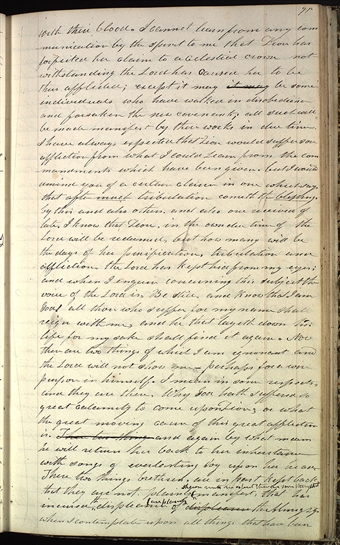 with their blood. I cannot learn from any com
munication by the spirit to me that Zion has
forfeited her claim to a celestial crown not
withstanding the Lord has caused her to be
thus afflicted; except it may be some
individuals who have walked in disobedience
and forsaken the new covenant; all such will
be made manifest by their works in due time.
I have always expected that Zion would suffer sore
affliction from what I could learn from the com
mandments which have been given. but I would
remind you of a certain clause in one which says
that after much tribulation cometh the blessing.
by this and also others, and also one received of
late, I know that Zion, in the own due time of the
Lord will be redeemed, but how many will be
the days of her purification, tribulation and
affliction, the Lord has kept hid from my eyes;
and when I enquire concerning this subject the
voice of the Lord is, Be still, and know that I am
God! all those who suffer for my name shall
reign with me, and he that layeth down his
life for my sake shall find it again. Now
there are two things of which I am ignorant and
the Lord will not show me perhaps for a wise
purpose in himself. I mean in some respects,
and they are these, Why God hath suffered so
great calamity to come upon Zion; or what
the great moving cause of this great affliction
is. and again by what means
he will return her back to her inheritance
with songs of everlasting joy upon her head.
These two things brethren, are in part kept back
that they are not plainly manifest,
incurred the displeasure of the Almighty.
when I contemplate upon all things that have been